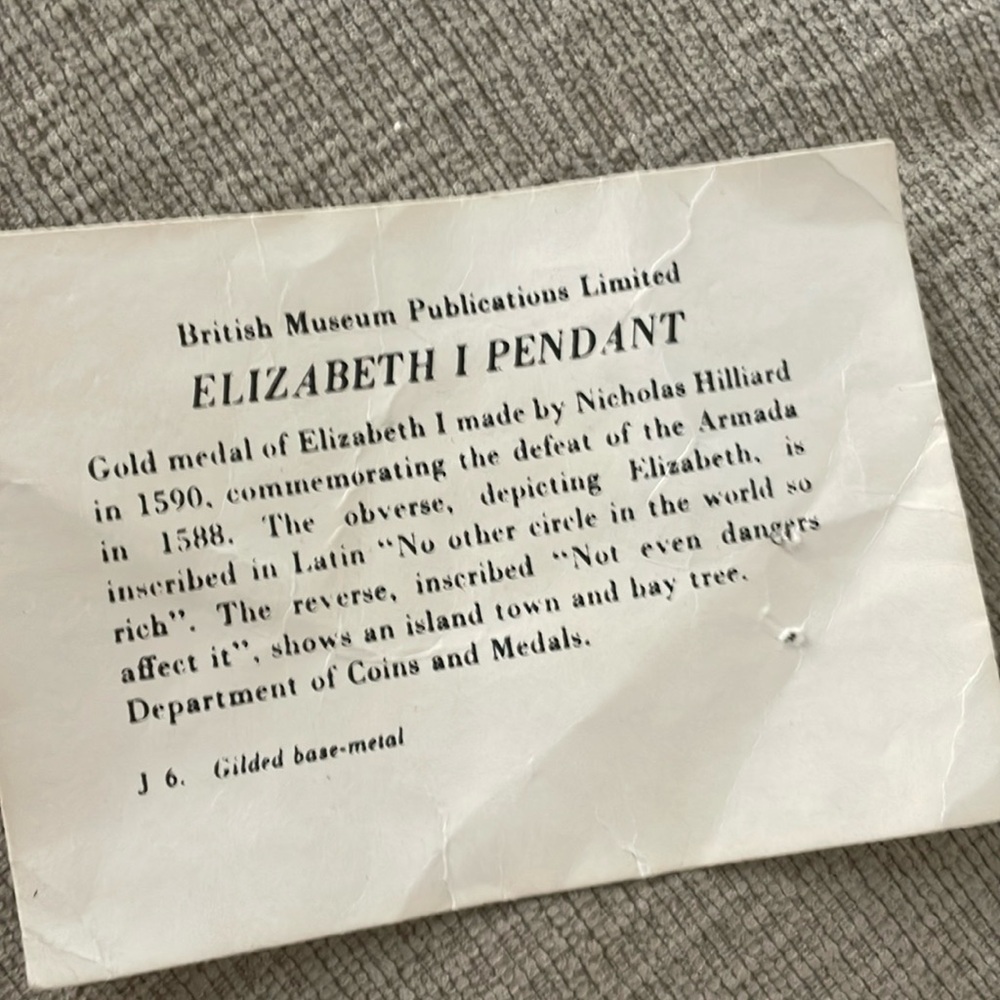 British Museum Publications Limited
ELIZABETH I PENDANT
Gold medal of Elizabeth I made by Nicholas Hilliard
in 1590, commemorating the defeat of the Armada
in 1588. The obverse, depicting Elizabeth, is
inscribed in Latin “No other circle in the world so
rich”. The reverse, inscribed “Not even dangers
affect it”, shows an island town and bay tree.
Department of Coins and Medals.
J 6. Gilded base-metal